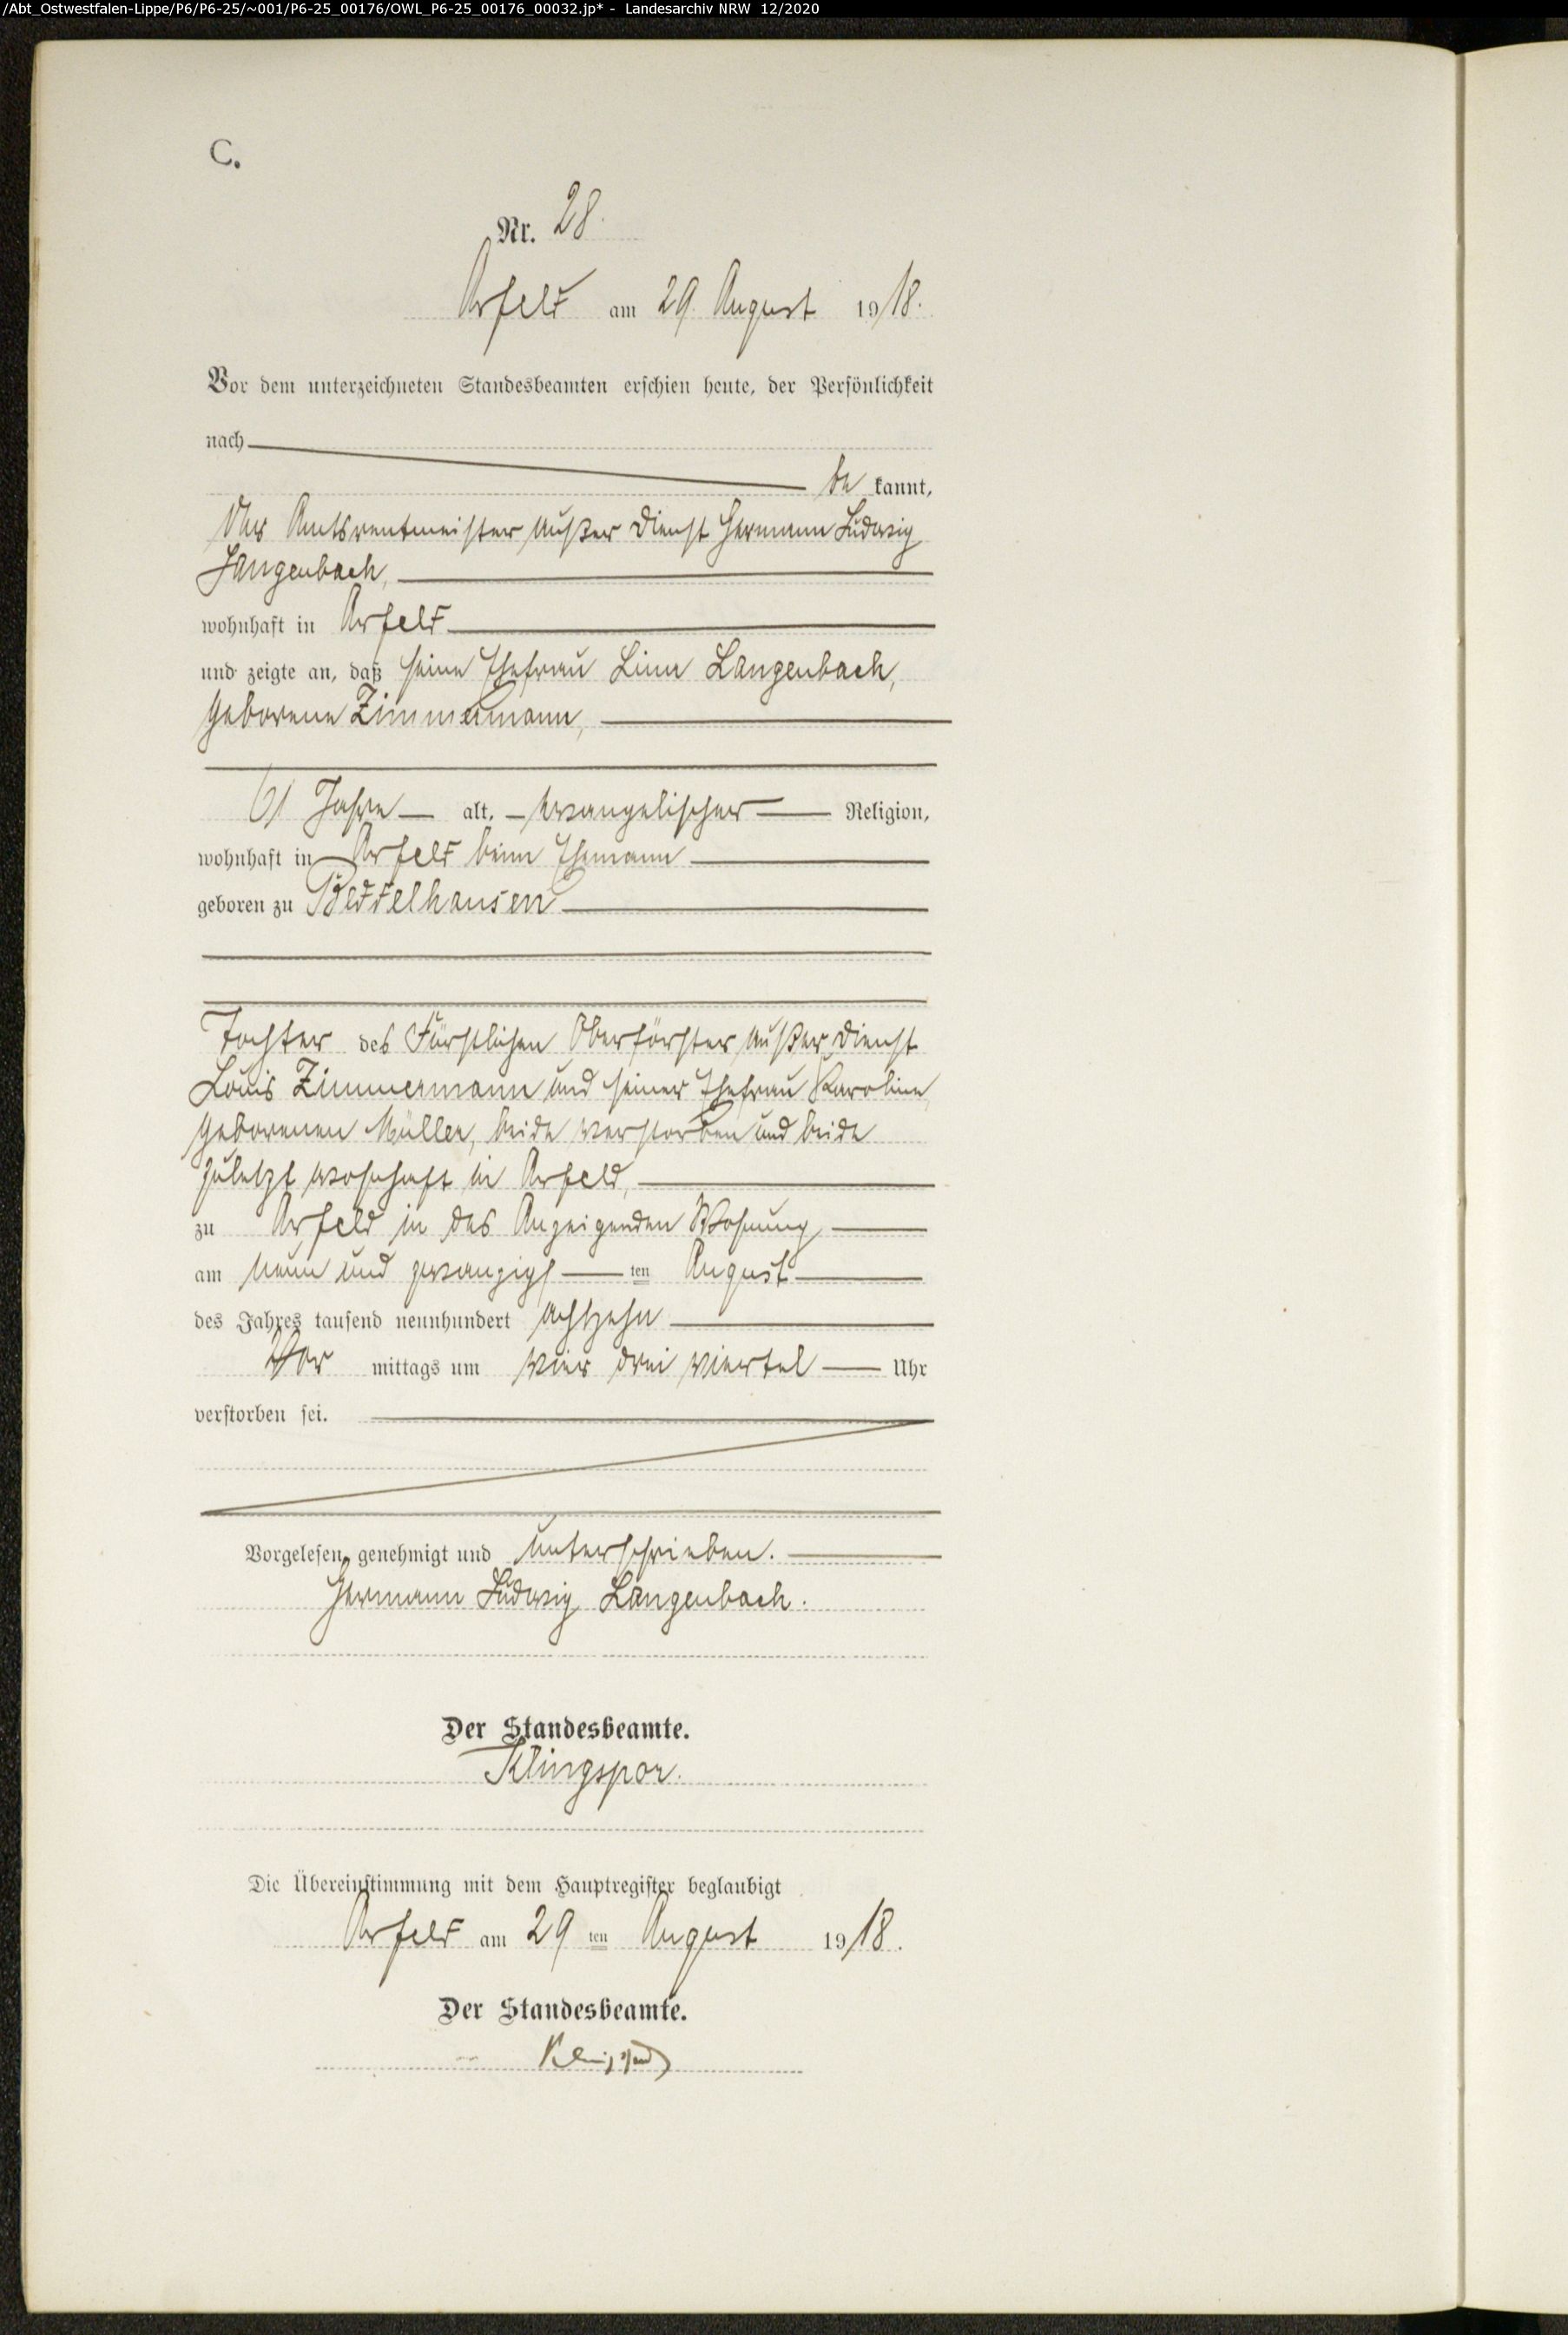 /Abt_Ostwestfalen-Lippe/P6/P6-25/~001/P6-25_00176/OWL_P6-25_00176_00032.jp* - Landesarchiv NRW 12/2020
C.
Nr. 28.
Arfeld am 29. August 1918.
Vor dem unterzeichneten Standesbeamten erschien heute, der Persönlichkeit
nach
be kannt,
Der Amtsrentmeister außer Dienst Hermann Ludwig
Langenbach,
wohnhaft in Arfeld
und zeigte an, daß seine Ehefrau Lina Langenbach,
geborene Zimmermann,
61 Jahre alt, evangelischer Religion,
wohnhaft in Arfeld beim Ehemann
geboren zu Beddelhausen
Tochter des Fürstlichen Oberförster außer Dienst
Louis Zimmermann und seiner Ehefrau Karoline
geborenen Müller, beide verstorben und beide
zuletzt wohnhaft in Arfeld,
zu Arfeld in des Anzeigenden Wohnung
am neun und zwanzigs ten August
des Jahres tausend neunhundert achtzehn
Vor mittags um vier drei viertel Uhr
verstorben sei.
Vorgelesen, genehmigt und unterschrieben.
Hermann Ludwig Langenbach.
Der Standesbeamte.
Klingspor.
Die Übereinstimmung mit dem Hauptregister beglaubigt
Arfeld am 29 ten August 1918.
Der Standesbeamte.
Klingspor